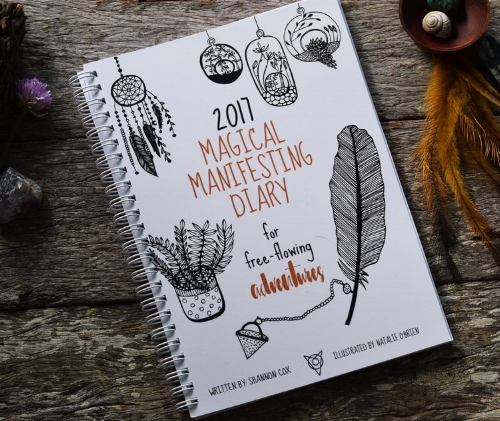 2017
MAGICAL
MANIFESTING
DIARY
for
free-flowing
adventures
WRITTEN BY: SHANNON COX
ILLUSTRATED BY NATALIE O'BRIEN